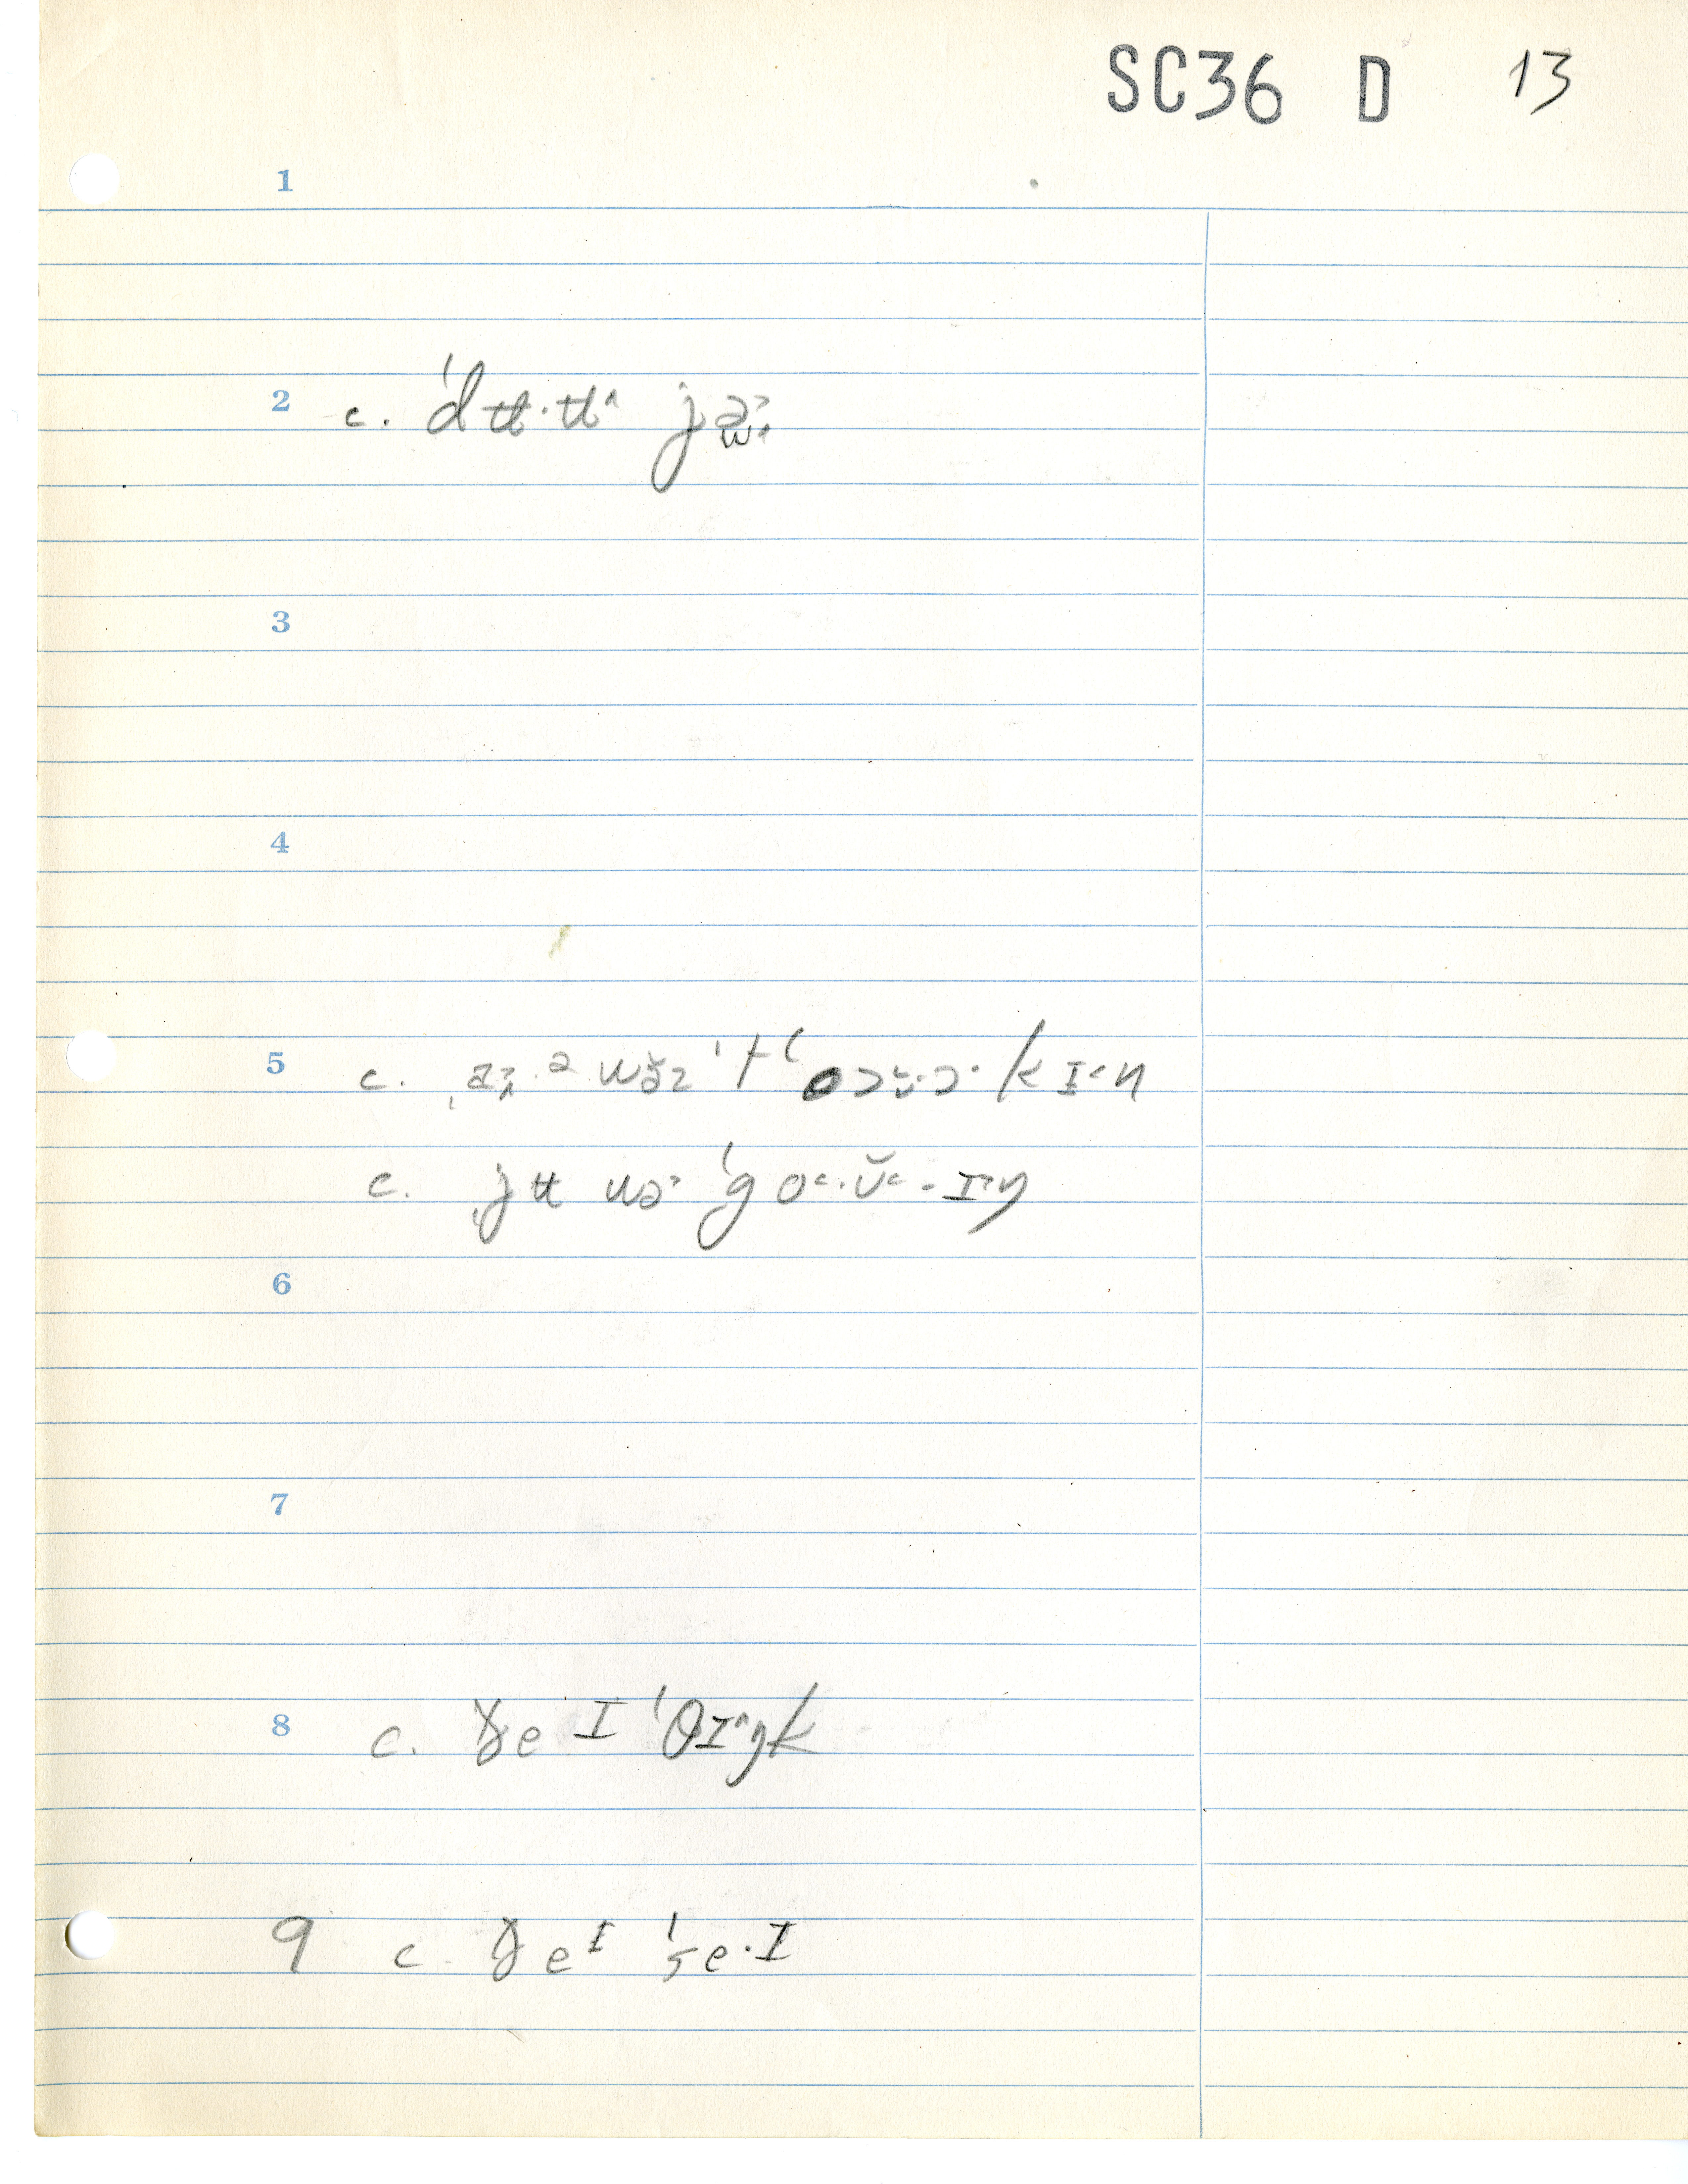 SC36 D 13
1
2 c. ˈdʉ·ʉ˄ jə
3
4
5 c. ə wə̆ ˈtʻɔ·ɔ·kɪ˂n
c. jʉ uə˃ ˈgo˂·ʊ̆˂-ɪ˃ŋ
6
7
8 c. ɣe ɪ ˈθɪ˄ŋk
9 c. ɣeᶦ ˈse·ɪ